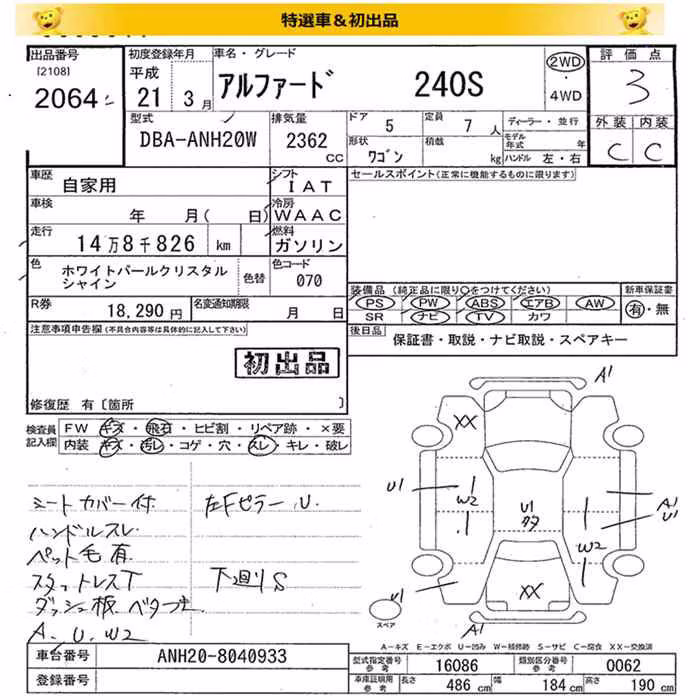 特選車＆初出品
出品番号
[2108]
2064
初度登録年月
平成
21 3月
車名・グレード
アルファード 240S
2WD
・
4WD
評価点
3
外装 内装
C C
型式
DBA-ANH20W
排気量
2362 CC
ドア 5
定員 7 人
ディーラー・並行
形状 ワゴン
積載 kg
モデル年式 年
ハンドル 左・右
車歴 自家用
シフト IAT
車検 年 月( 日)
冷房 WAAC
走行 14万8千826 km
燃料 ガソリン
色 ホワイトパールクリスタルシャイン
色替
色コード 070
R券 18,290 円
名変通知期限 月 日
セールスポイント(正常に機能するものに限ります)
装備品 (純正品に限り○をつけてください)
PS・PW・ABS・エアB・AW・
SR ナビ・TV・カワ
新車保証書
有・無
後日品
保証書・取説・ナビ取説・スペアキー
注意事項申告欄(不具合内容等は具体的に記入して下さい)
初出品
修復歴 有〔箇所 〕
検査員記入欄
FW キズ・飛石・ヒビ割・リペア跡・×要
内装 キズ・汚レ・コゲ・穴・スレ・キレ・破レ
シートカバー付 左Fピラー U
ハンドルスレ
ペット毛有
スタットレスT 下廻りS
ダッシュ板 ベタつき
A. U. W2
A1
XX
U1
W2
U1
A1
U1
W2
XX
U1
A1
スペア
A－キズ E－エクボ U－凹み W－補修跡 S－サビ C－腐食 XX－交換済
車台番号 ANH20-8040933
登録番号
型式指定番号参考 16086
類別区分番号参考 0062
車庫証明用参考 長さ 486 cm 幅 184 cm 高さ 190 cm